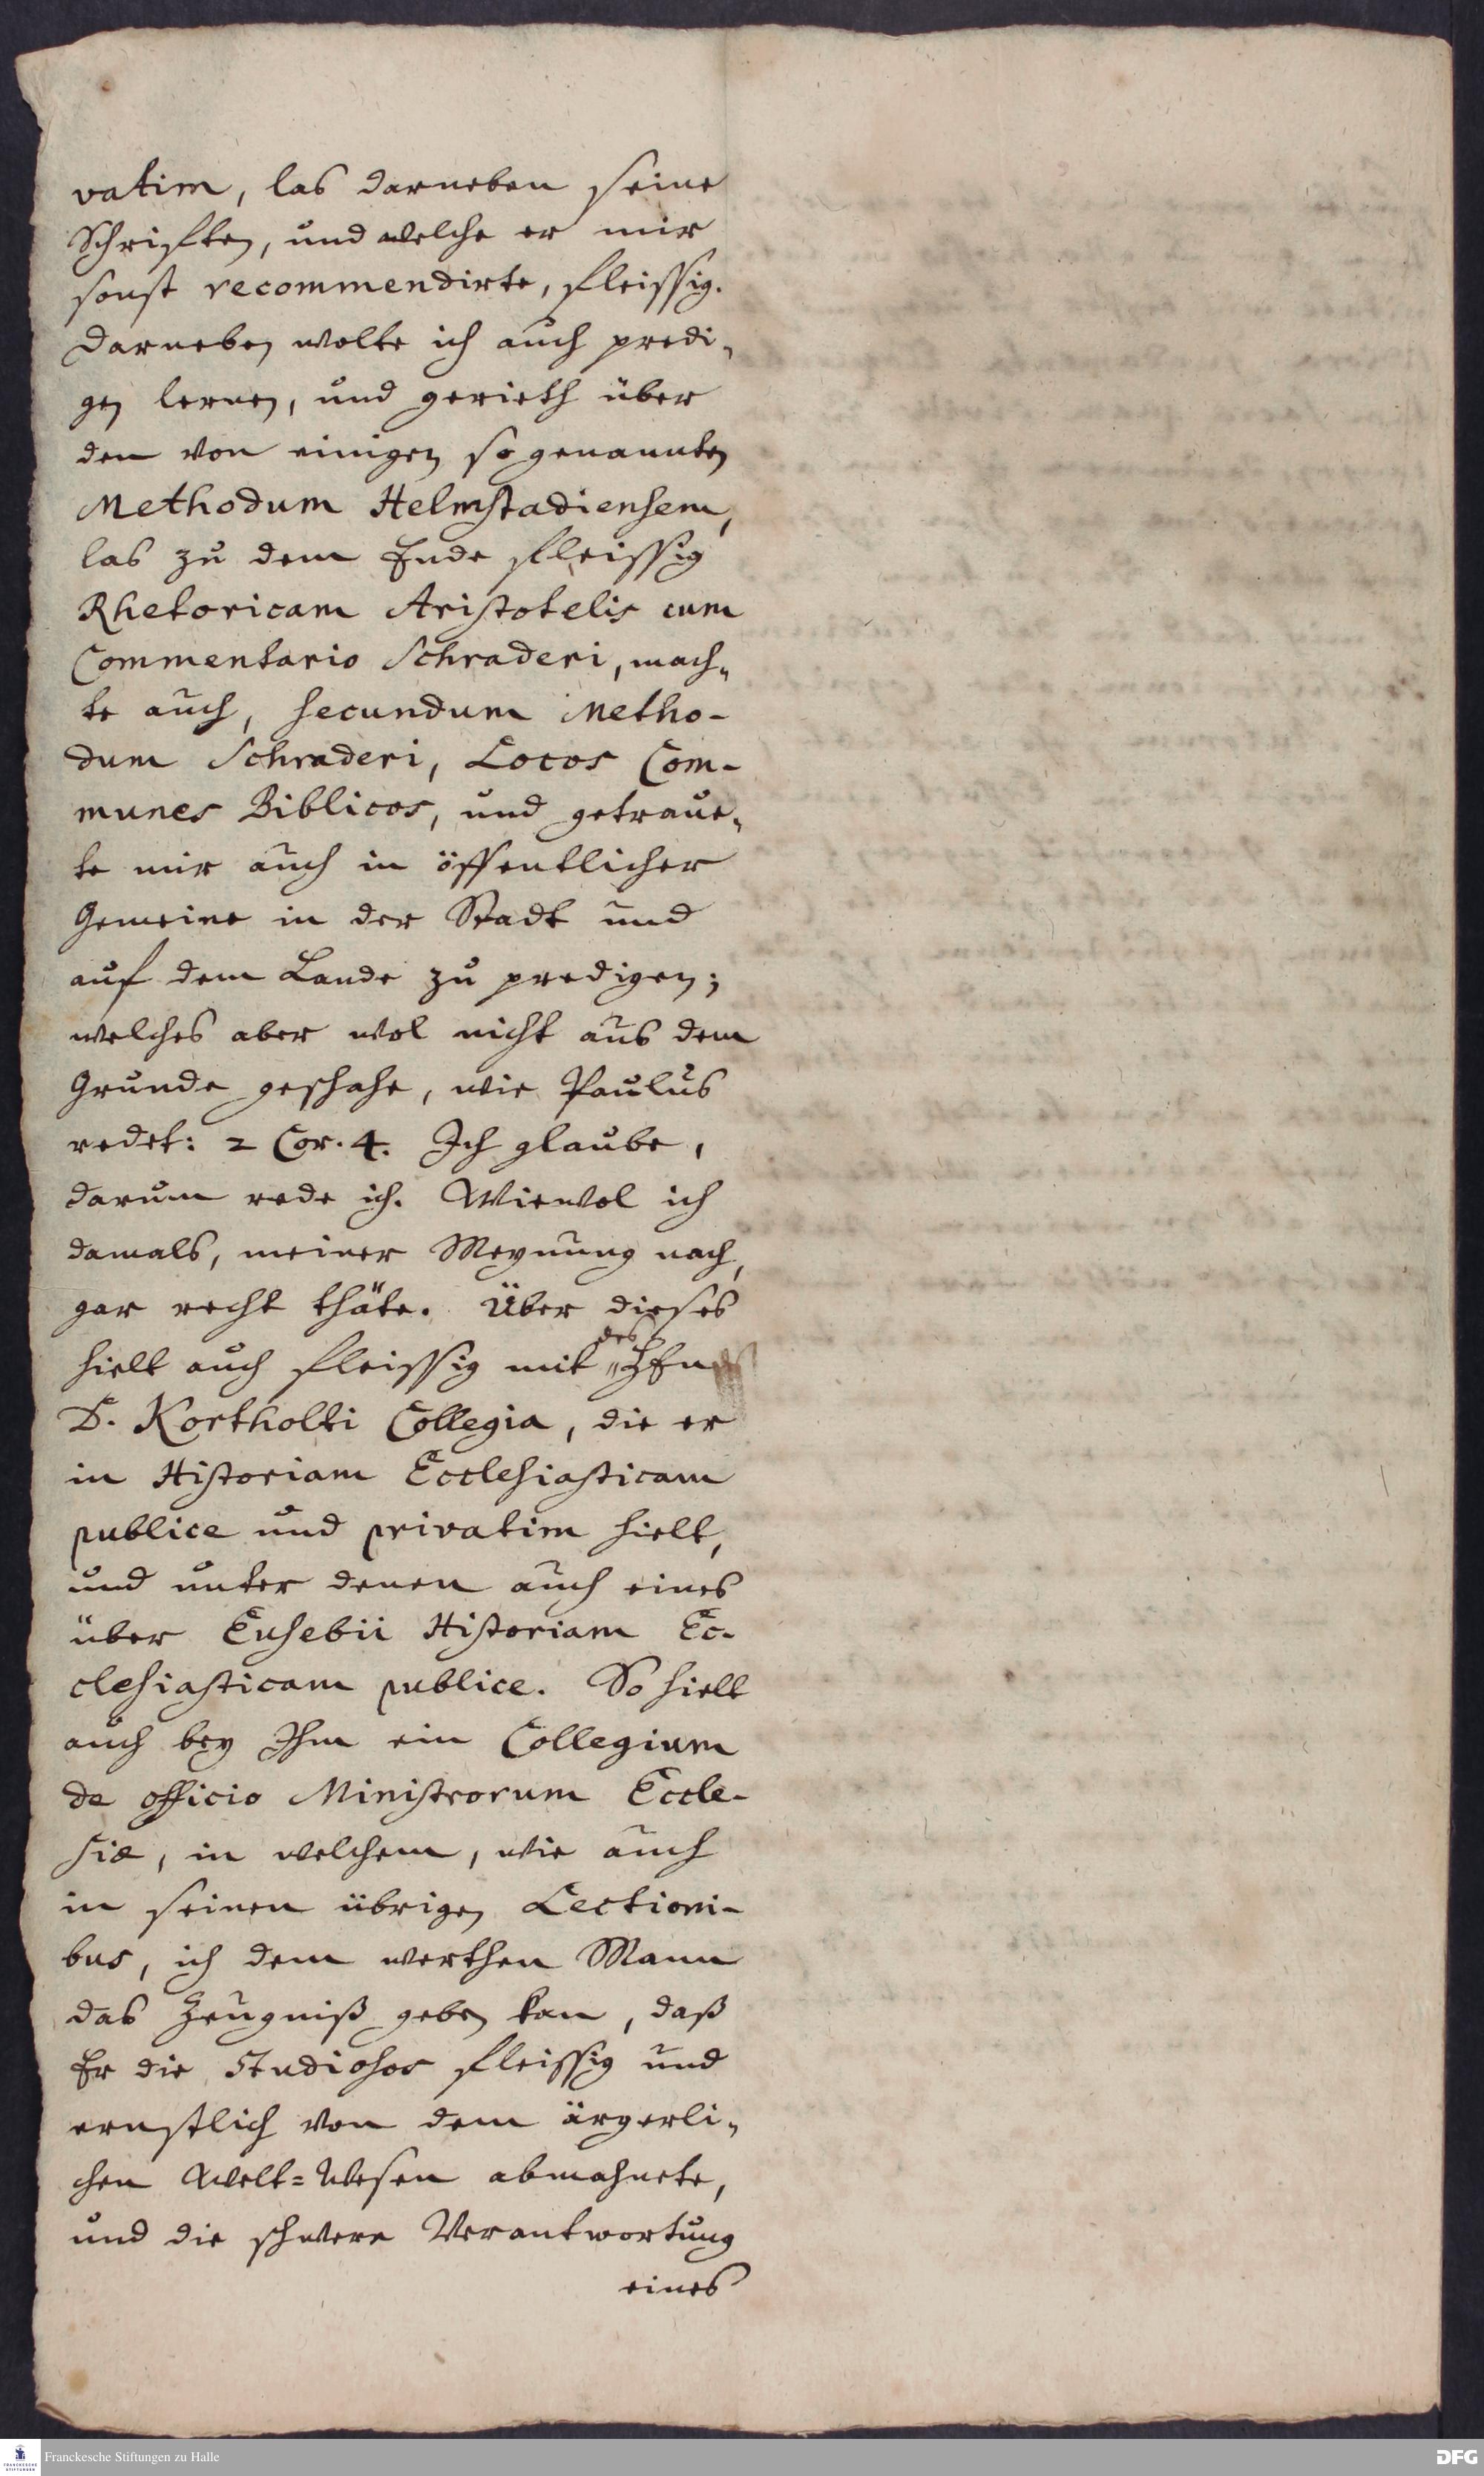 vatim, las darneben seine
Schrifften, und welche er mir
sonst recommendirte, fleissig.
Darneben wolte ich auch predi-
gen lernen, und gerieth über
den von einigen so genannten
Methodum Helmstadiensem,
las zu dem Ende fleissig
Rhetoricam Aristotelis cum
Commentario Schraderi, mach-
te auch, secundum Metho-
dum Schraderi, Locos Com-
munes Biblicos, und getraue-
te mir auch in öffentlicher
Gemeine in der Stadt und
auf dem Lande zu predigen;
welches aber wol nicht aus dem
Grunde geschahe, wie Paulus
redet: 2 Cor. 4. Ich glaube,
darum rede ich. Wiewol ich
damals, meiner Meynung nach,
gar recht thäte. Über dieses
hielt auch fleissig mit des Hrn
D. Kortholti Collegia, die er
in Historiam Ecclesiasticam
publice und privatim hielt,
und unter denen auch eines
über Eusebii Historiam Ec-
clesiasticam publice. So hielt
auch bey Ihm ein Collegium
de officio Ministrorum Eccle-
siæ, in welchem, wie auch
in seinen übrigen Lectioni-
bus, ich dem werthen Mann
das Zeugniß geben kan, daß
Er die Studiosos fleissig und
ernstlich von dem ärgerli-
chen Welt=Wesen abmahnete,
und die schwere Verantwortung
eines
Franckesche Stiftungen zu Halle
DFG